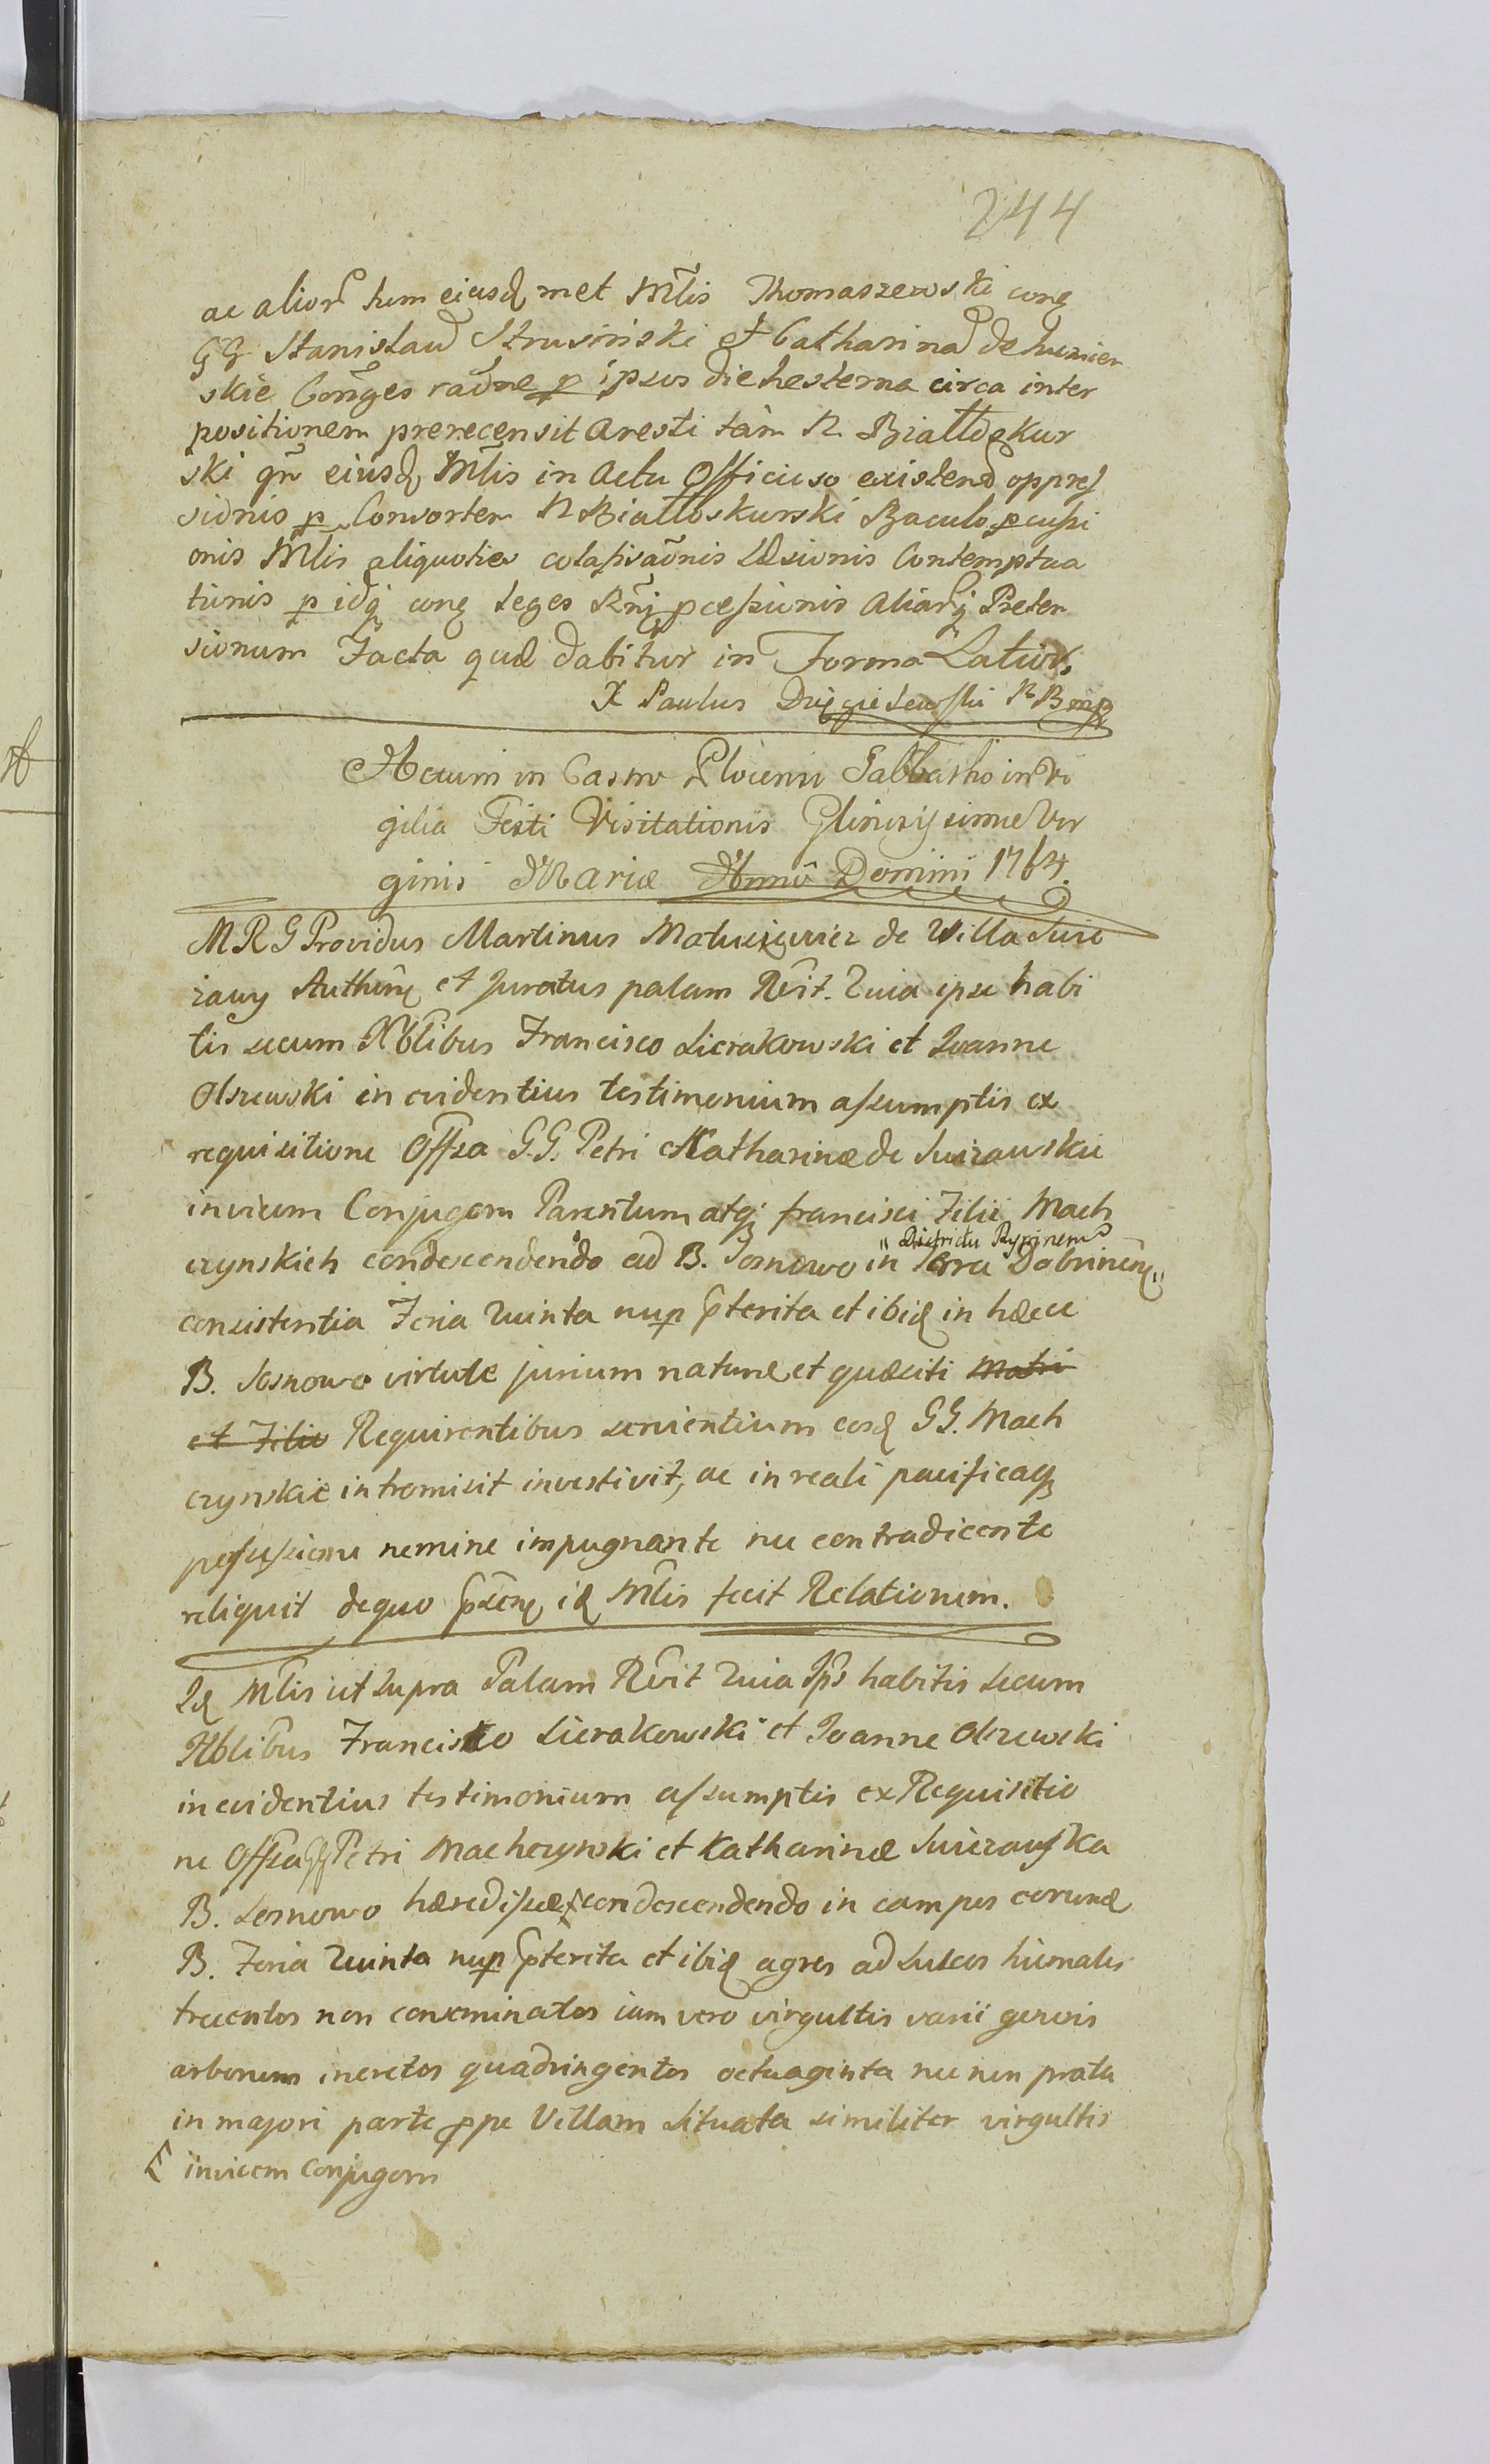 244
ac alior tum eiusd met Mlis Thomaszewski conq
GG Stanislau Strusinski et Catharina de
skie Conges raone p ipsos die hesterna circa inter
positionem prerecensit Aresti tam N. Bialloskur
ski qm eiusd Mlis in Actu Officioso existend oppres
sionis p Consortem N Bialloskurski Baculo pcussi
onis Mlis aliquoties colafisaonis Læsionis Contemptua
tionis p idq conq leges Rni pcessionis Aliarq Preten
sionum Facta quæ dabitur in Forma Latiori
X Paulus
Actum in Castro Plocensi Sabbatho in Vi
gilia Festi Visitationis Gloriosissimæ Vir
ginis Mariæ Anno Domini 1764.
MRG Providus Martinus Matusiewicz de Villa Suie
rawy Authenq et Juratus palam Rvit. Quia ipse habi
tis secum Nblibus Francisco Sierakowski et Joanne
Olszewski in evidentius testimonium assumptis ex
requisitione Offsa G.G. Petri Katharinæ de Swierawskie
invicem Conjugom Parentum atq francisci Filii Mach
czynskich condescendendo ad B. Sosnowo in "Districtu Rypinensi Terra Dobrinenq"
consistentia Feria Quinta nup pterita et ibid in hæce
B. Sosnowo virtute jurium naturæ et quæsiti Matri
et Filio Requirentibus servientium eosd GG. Mach
czynskie intromisit investivit, ac in reali pacificaq
possessione nemine impugnante nec contradicente
reliquit de quo psenq id Mlis fecit Relationem.
Id Mlis ut supra Palam Rvit Quia Ips habitis secum
Nblibus Francisco Sierakowski et Joanne Olszewski
in evidentius testimonium assumptis ex Requisitio
ne Offsa GG Petri Machczynski et Katharinæ Swierawska
B. Sosnowo hæredissæ condescendendo in campos eorund
B. Feria Quinta nup pterita et ibid agros ad sulcos hiemales
trecentos non conseminatos iam vero virgultis varii generis
arborum incretos quadringentos octuaginta nec non prata
in majori parte ppe Villam situata similiter virgultis
invicem Conjugom